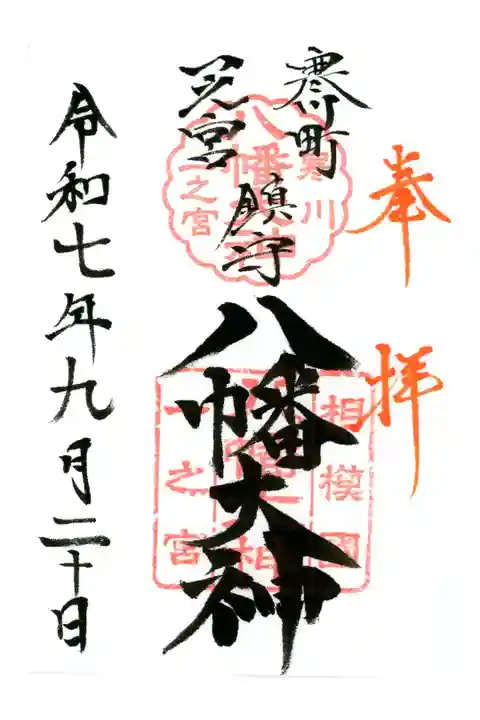 奉拝
寒川町
一之宮
鎮守
八幡大神
令和七年九月二十日
寒川
八幡大神
一之宮
相模國
八幡大神
一之宮